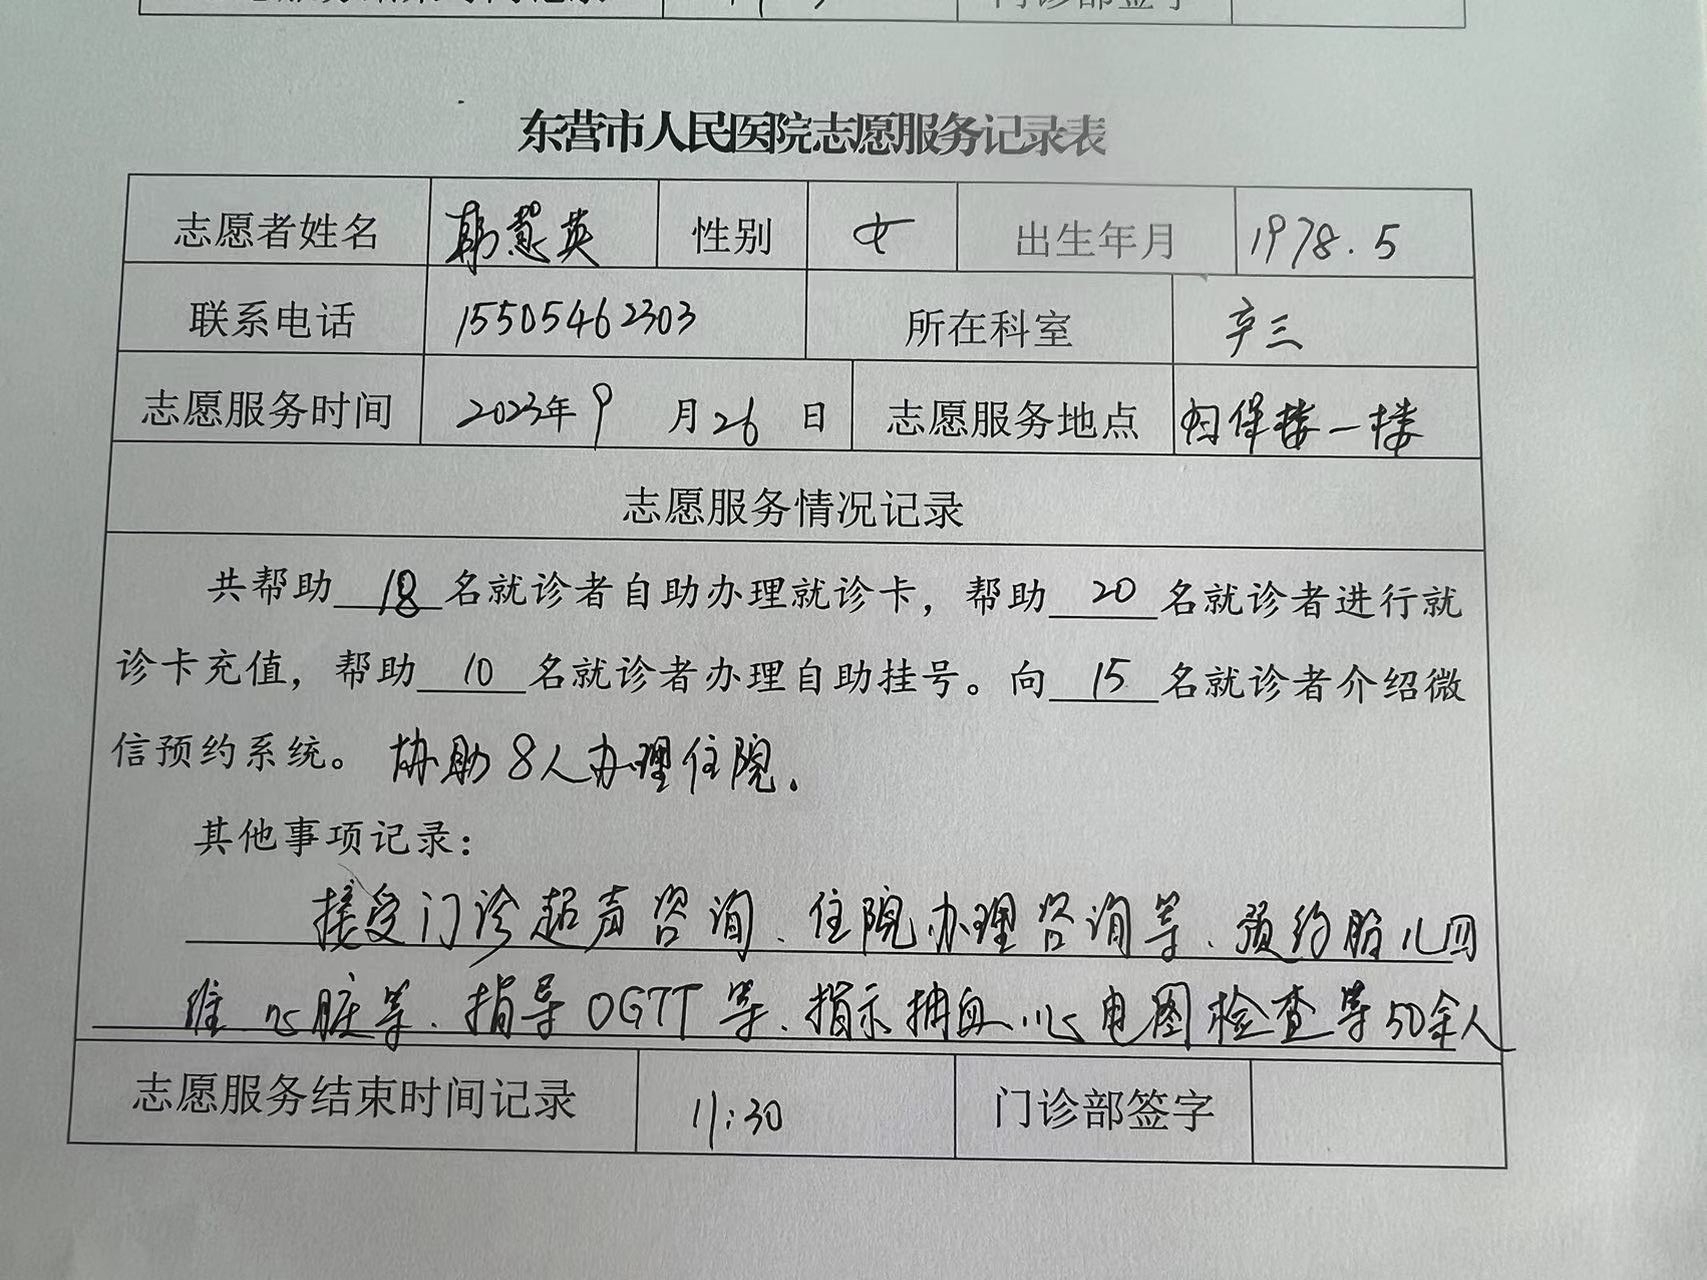 东营市人民医院志愿服务记录表
志愿者姓名 韩慧英 性别 女 出生年月 1978.5
联系电话 15505462303 所在科室 产三
志愿服务时间 2023年9月26日 志愿服务地点 妇保楼一楼
志愿服务情况记录
共帮助 18 名就诊者自助办理就诊卡，帮助 20 名就诊者进行就
诊卡充值，帮助 10 名就诊者办理自助挂号。向 15 名就诊者介绍微
信预约系统。协助8人办理住院.
其他事项记录：
接受门诊超声咨询、住院办理咨询等、预约胎儿四
维 心脏等、指导OGTT等、指示抽血、心电图检查等50余人
志愿服务结束时间记录 11:30 门诊部签字